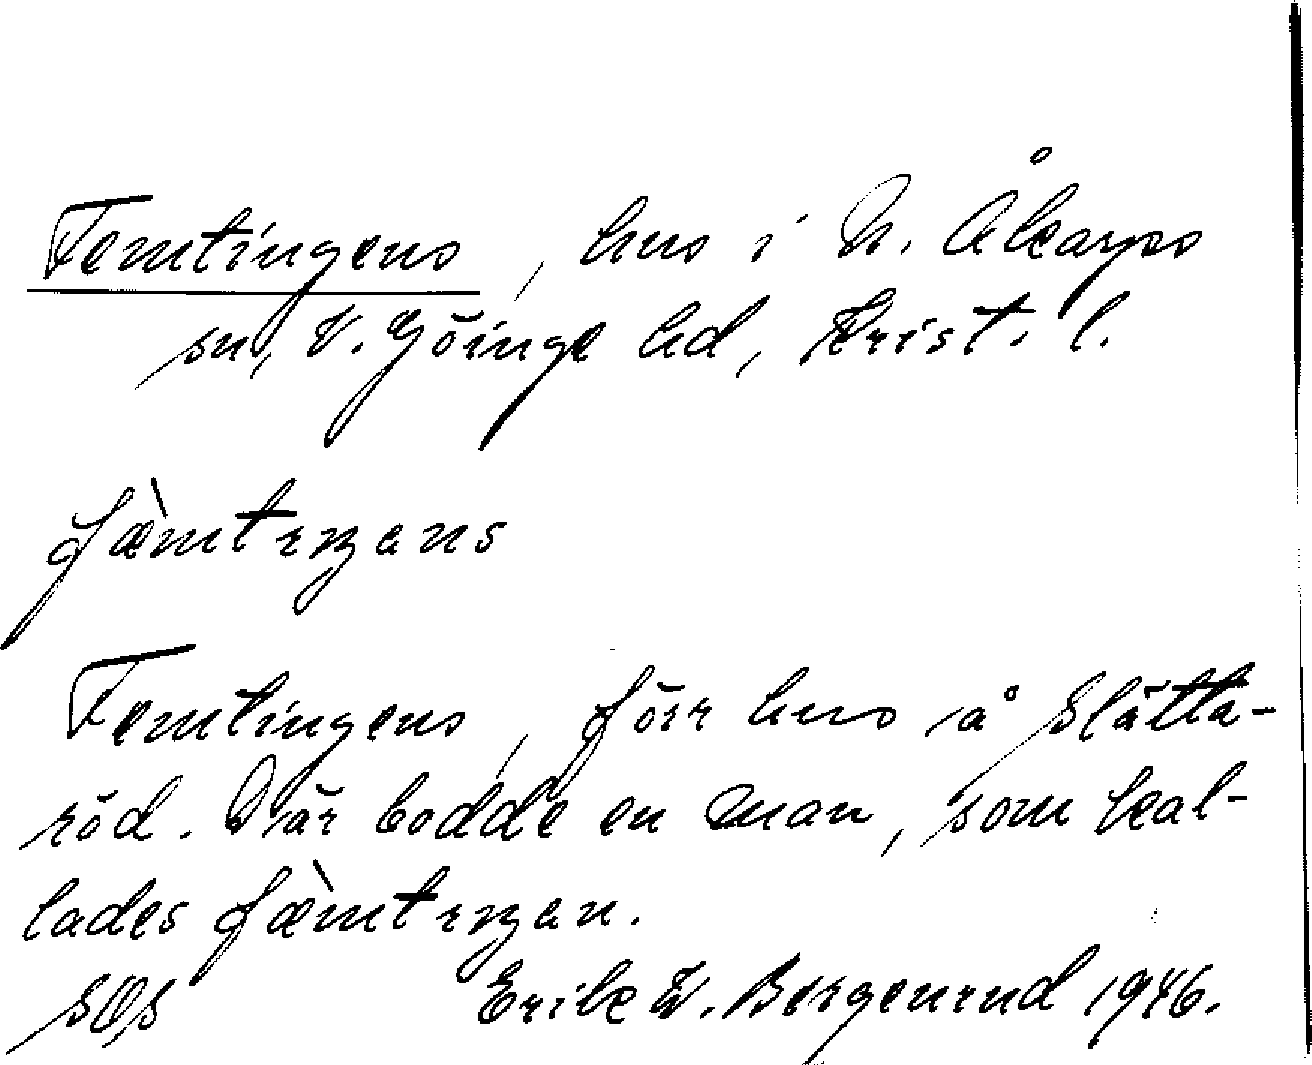 Femtingens, hus i N. Åkarps
sn, V. Göinge hd, Krist. l.
fæ̀mtɪŋans
Femtingens, förr hus å Slätta-
röd. Där bodde en man, som kal-
lades fæ̀mtɪŋan.
SOS Erik W. Bergenrud 1946.